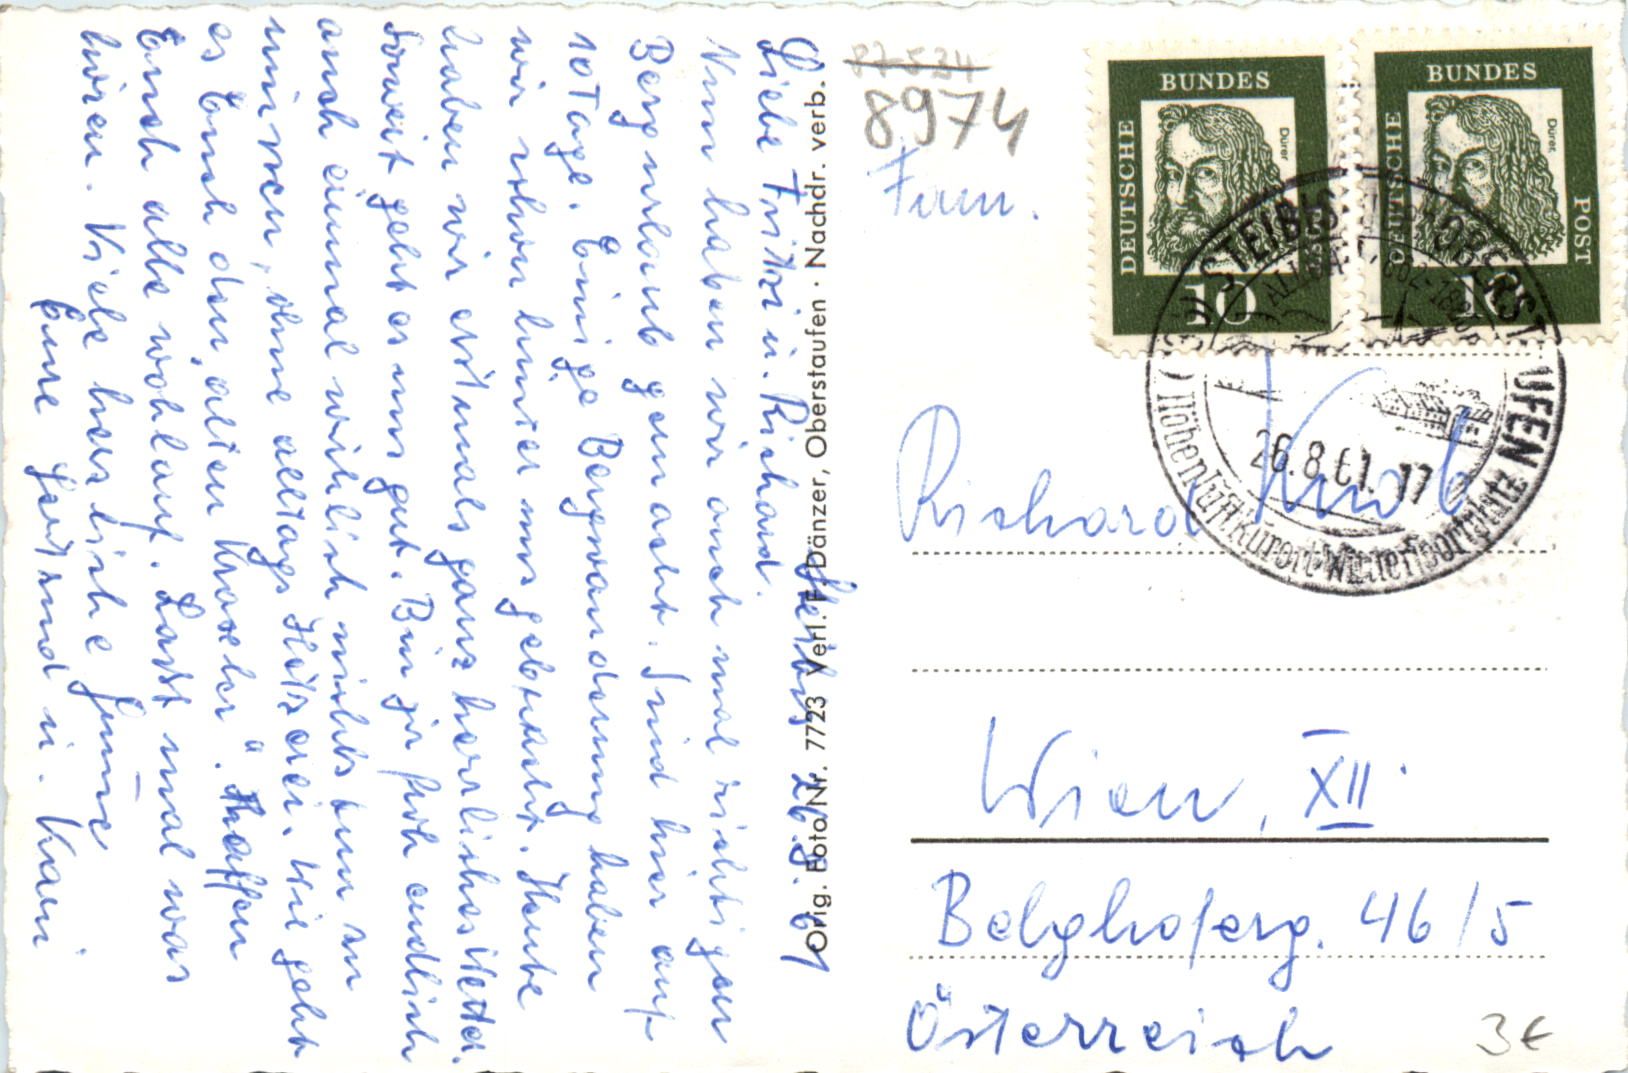 Steibis 26.8.61
Liebe Fritzi u. Richard.
Nun haben wir auch mal richtigen
Bergurlaub gemacht. Sind hier auf
10 Tage. Einige Bergwanderung haben
wir schon hinter uns gebracht. Heute
haben wir erstmals ganz herrliches Wetter.
Soweit geht es uns gut. Bin ja froh endlich
auch einmal wirklich nichts tun zu
müssen, ohne alltags Hetzerei. Wie geht
es Euch den „alten Knacker". Hoffen
Euch alle wohlauf. Lasst mal was
hören. Viele herzliche Grüsse
Eure Gertrud u. Karli
Orig. Foto Nr. 7723 Verl. F. Dänzer, Oberstaufen · Nachdr. verb.
87 524
8974
Fam.
Richard
Wien, XII.
Österreich
BUNDES
DEUTSCHE
POST
Dürer
10
BUNDES
DEUTSCHE
POST
Dürer
10
STEIBIS OBERSTAUFEN
26.8.61.-17
Höhenluftkurort Wintersportplatz
3€